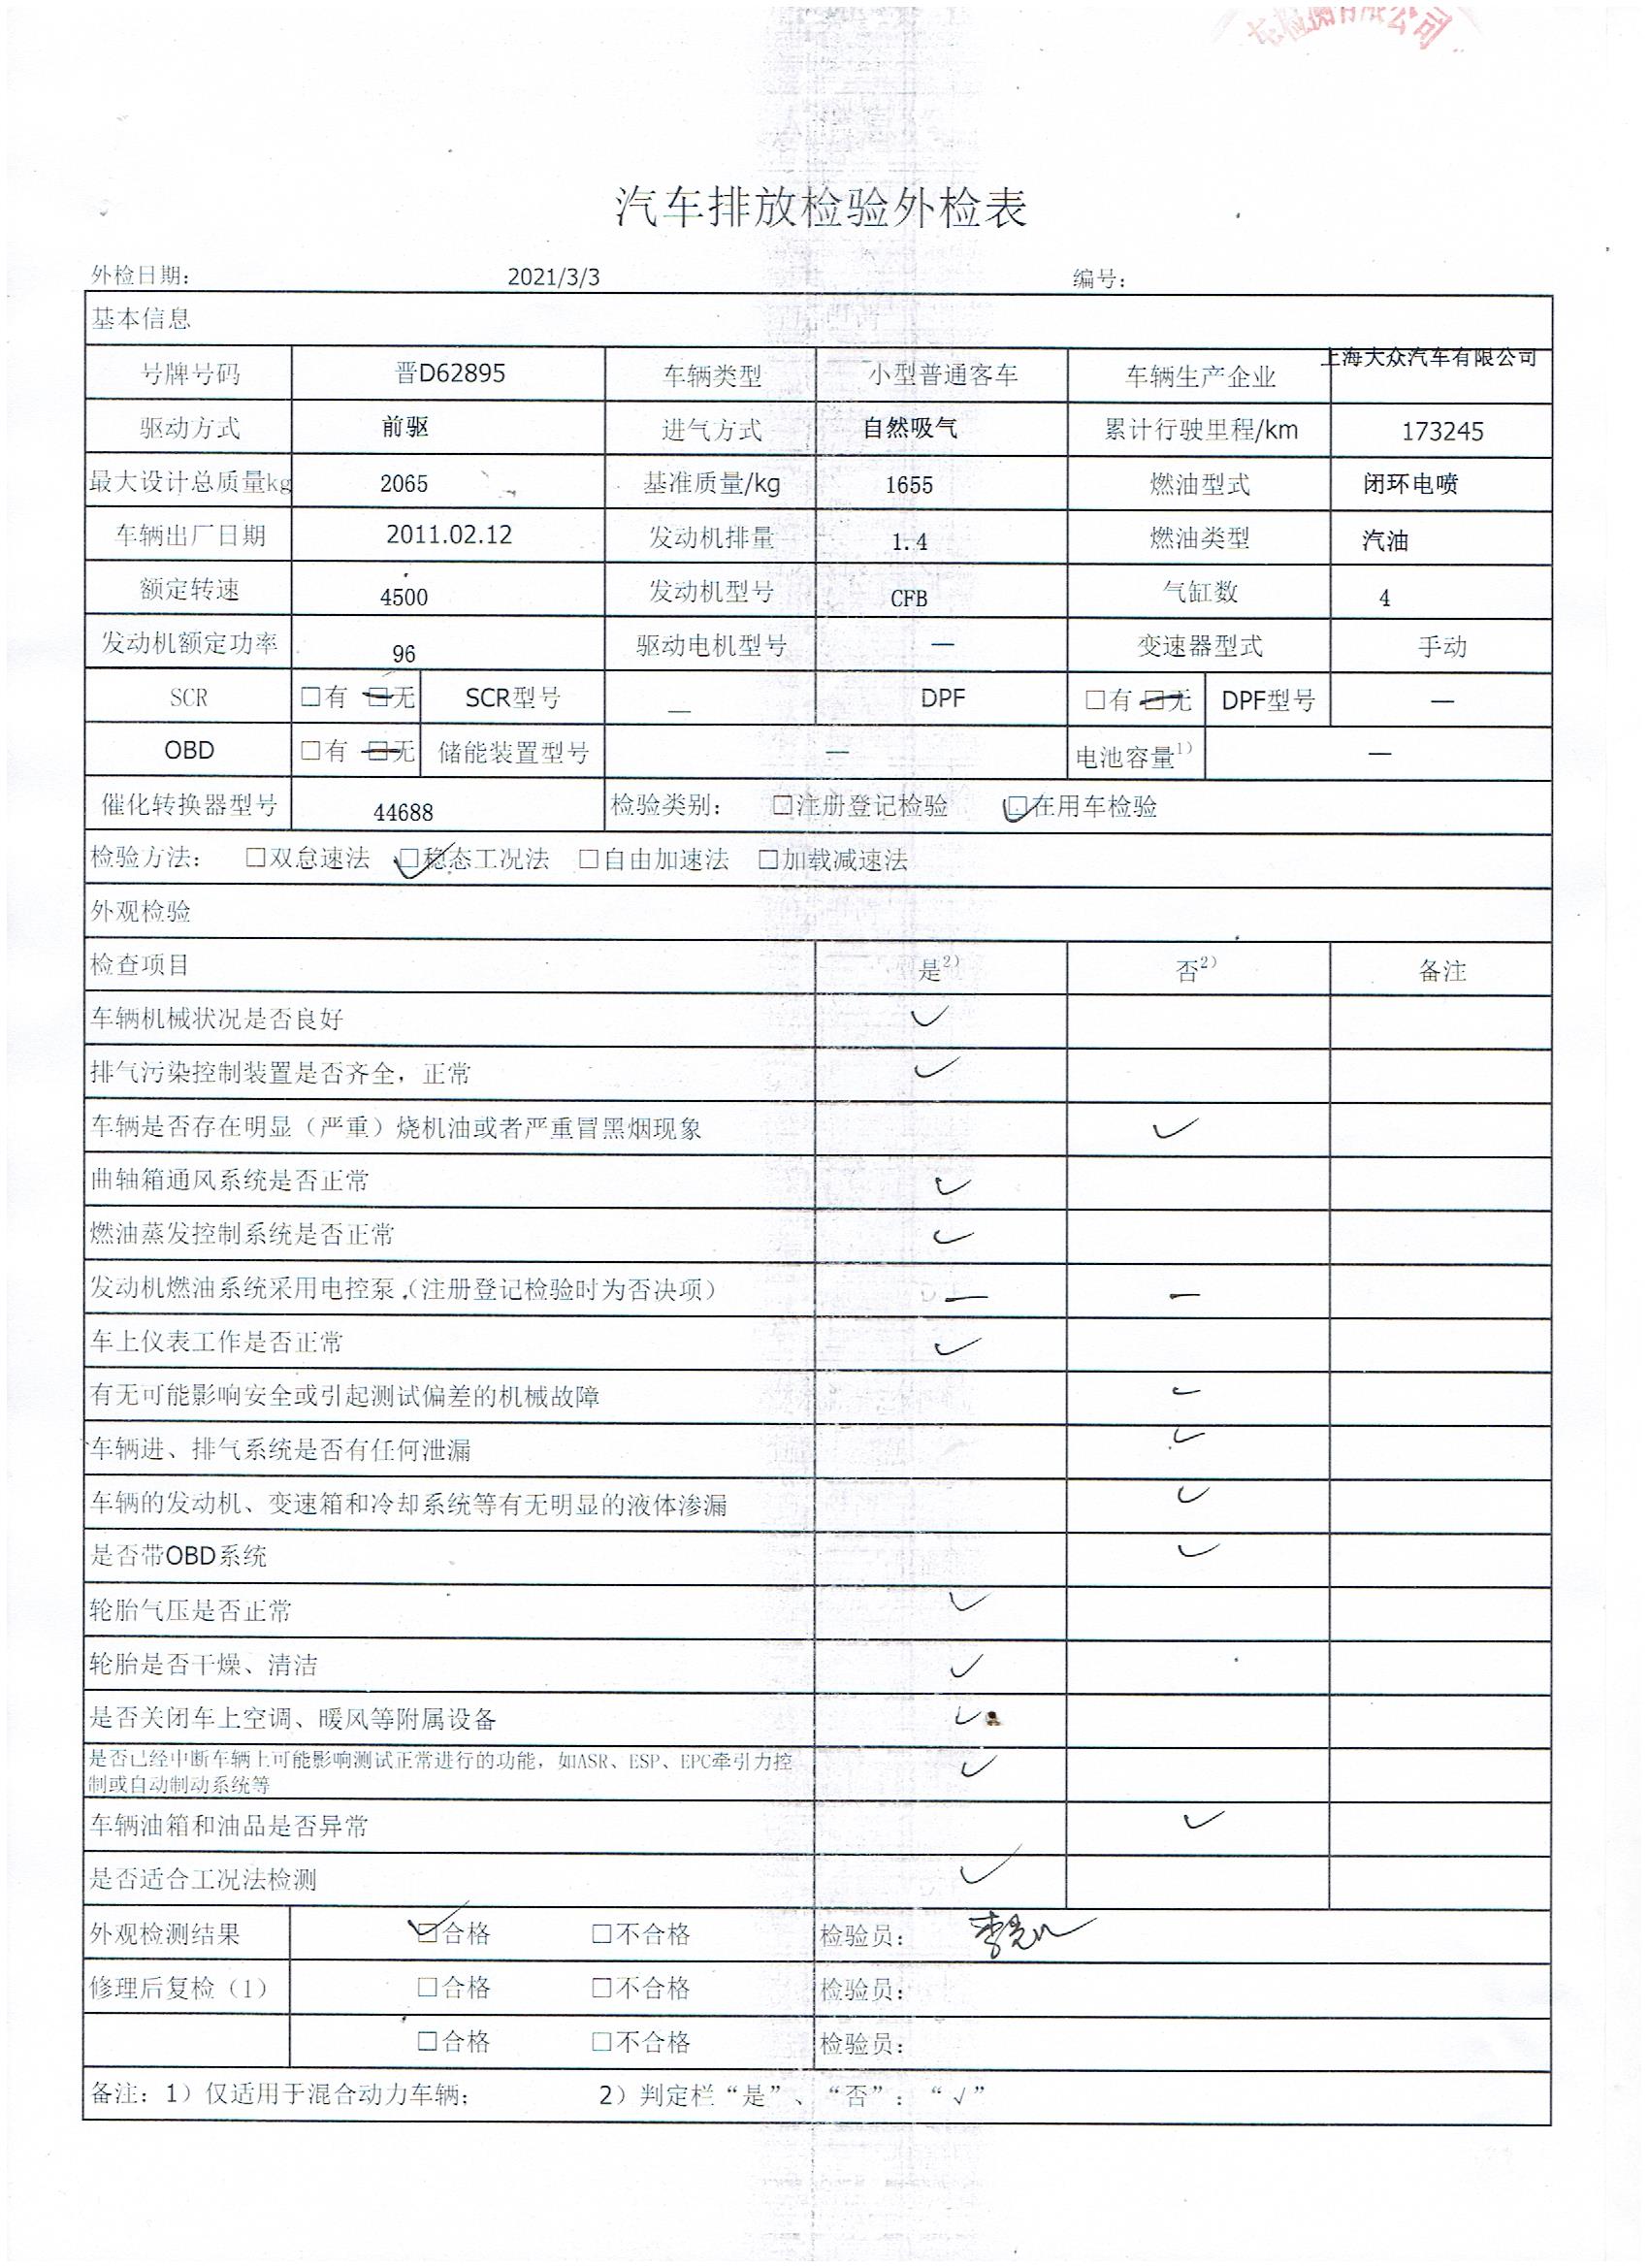 检测有限公司
汽车排放检验外检表
外检日期： 2021/3/3 编号：
基本信息
号牌号码 晋D62895 车辆类型 小型普通客车 车辆生产企业 上海大众汽车有限公司
驱动方式 前驱 进气方式 自然吸气 累计行驶里程/km 173245
最大设计总质量kg 2065 基准质量/kg 1655 燃油型式 闭环电喷
车辆出厂日期 2011.02.12 发动机排量 1.4 燃油类型 汽油
额定转速 4500 发动机型号 CFB 气缸数 4
发动机额定功率 96 驱动电机型号 — 变速器型式 手动
SCR □有 □无 SCR型号 — DPF □有 □无 DPF型号 —
OBD □有 □无 储能装置型号 — 电池容量1) —
催化转换器型号 44688 检验类别： □注册登记检验 ☑在用车检验
检验方法： □双怠速法 ☑稳态工况法 □自由加速法 □加载减速法
外观检验
检查项目 是2) 否2) 备注
车辆机械状况是否良好 ✓
排气污染控制装置是否齐全，正常 ✓
车辆是否存在明显（严重）烧机油或者严重冒黑烟现象 ✓
曲轴箱通风系统是否正常 ✓
燃油蒸发控制系统是否正常 ✓
发动机燃油系统采用电控泵（注册登记检验时为否决项） — —
车上仪表工作是否正常 ✓
有无可能影响安全或引起测试偏差的机械故障 ✓
车辆进、排气系统是否有任何泄漏 ✓
车辆的发动机、变速箱和冷却系统等有无明显的液体渗漏 ✓
是否带OBD系统 ✓
轮胎气压是否正常 ✓
轮胎是否干燥、清洁 ✓
是否关闭车上空调、暖风等附属设备 ✓
是否已经中断车辆上可能影响测试正常进行的功能，如ASR、ESP、EPC牵引力控
制或自动制动系统等 ✓
车辆油箱和油品是否异常 ✓
是否适合工况法检测 ✓
外观检测结果 ☑合格 □不合格 检验员：
修理后复检（1） □合格 □不合格 检验员：
□合格 □不合格 检验员：
备注：1）仅适用于混合动力车辆； 2）判定栏“是”、“否”：“√”